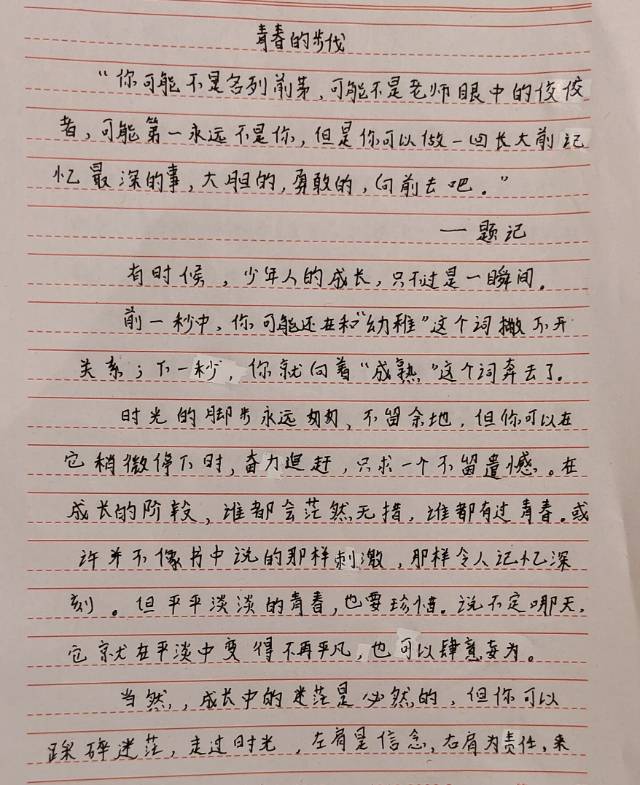 青春的步伐
“你可能不是名列前茅,可能不是老师眼中的佼佼
者,可能第一永远不是你,但是你可以做一回长大前记
忆最深的事,大胆的,勇敢的,向前去吧。”
——题记
有时候,少年人的成长,只不过是一瞬间。
前一秒中,你可能还在和“幼稚”这个词撇不开
关系;下一秒,你就向着“成熟”这个词奔去了。
时光的脚步永远匆匆,不留余地,但你可以在
它稍微停下时,奋力追赶,只求一个不留遗憾。在
成长的阶段,谁都会茫然无措,谁都有过青春。或
许并不像书中说的那样刺激,那样令人记忆深
刻。但平平淡淡的青春,也要珍惜。说不定哪天,
它就在平淡中变得不再平凡,也可以肆意妄为。
当然,成长中的迷茫是必然的,但你可以
踩碎迷茫,走过时光,左肩是信念,右肩为责任,来